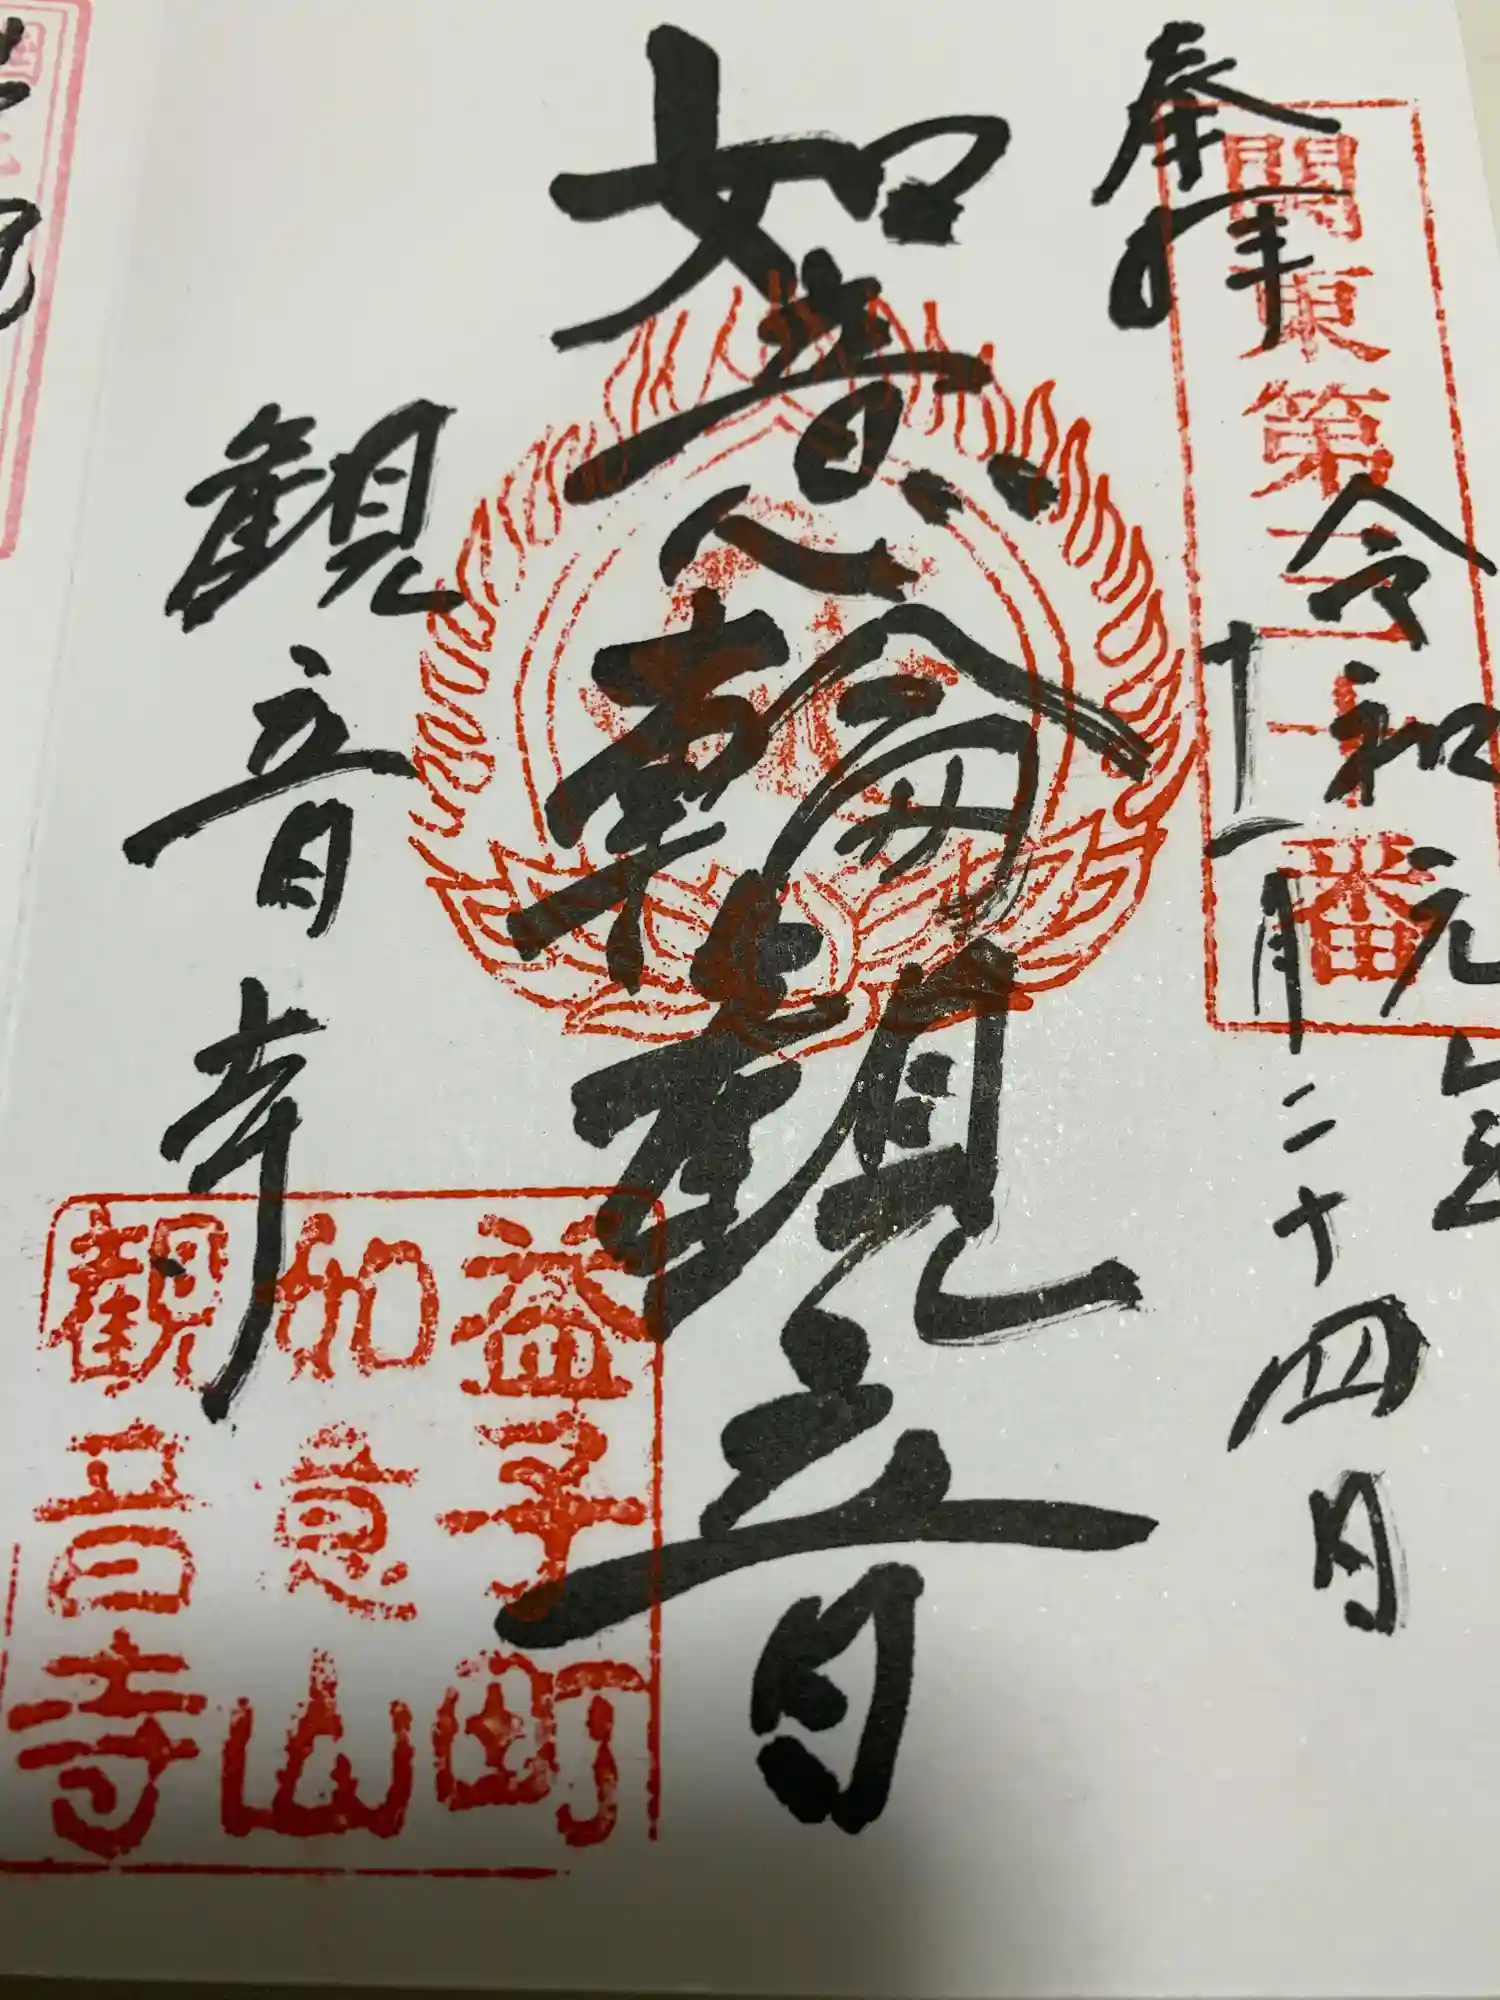 奉拝
關東第三十番
令和元年
十一月二十四日
如意輪観音
観音寺
益子町
如意山
観音寺